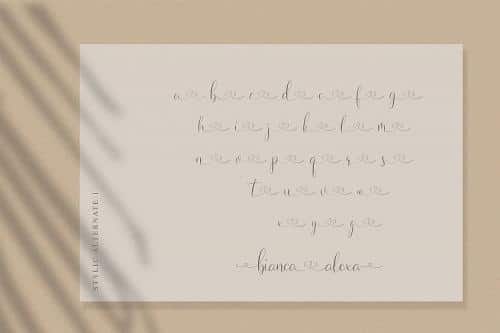 a b c d e f g
h i j k l m
n o p q r s
t u v w
x y z
bianca alexa
STYLIC ALTERNATE 1